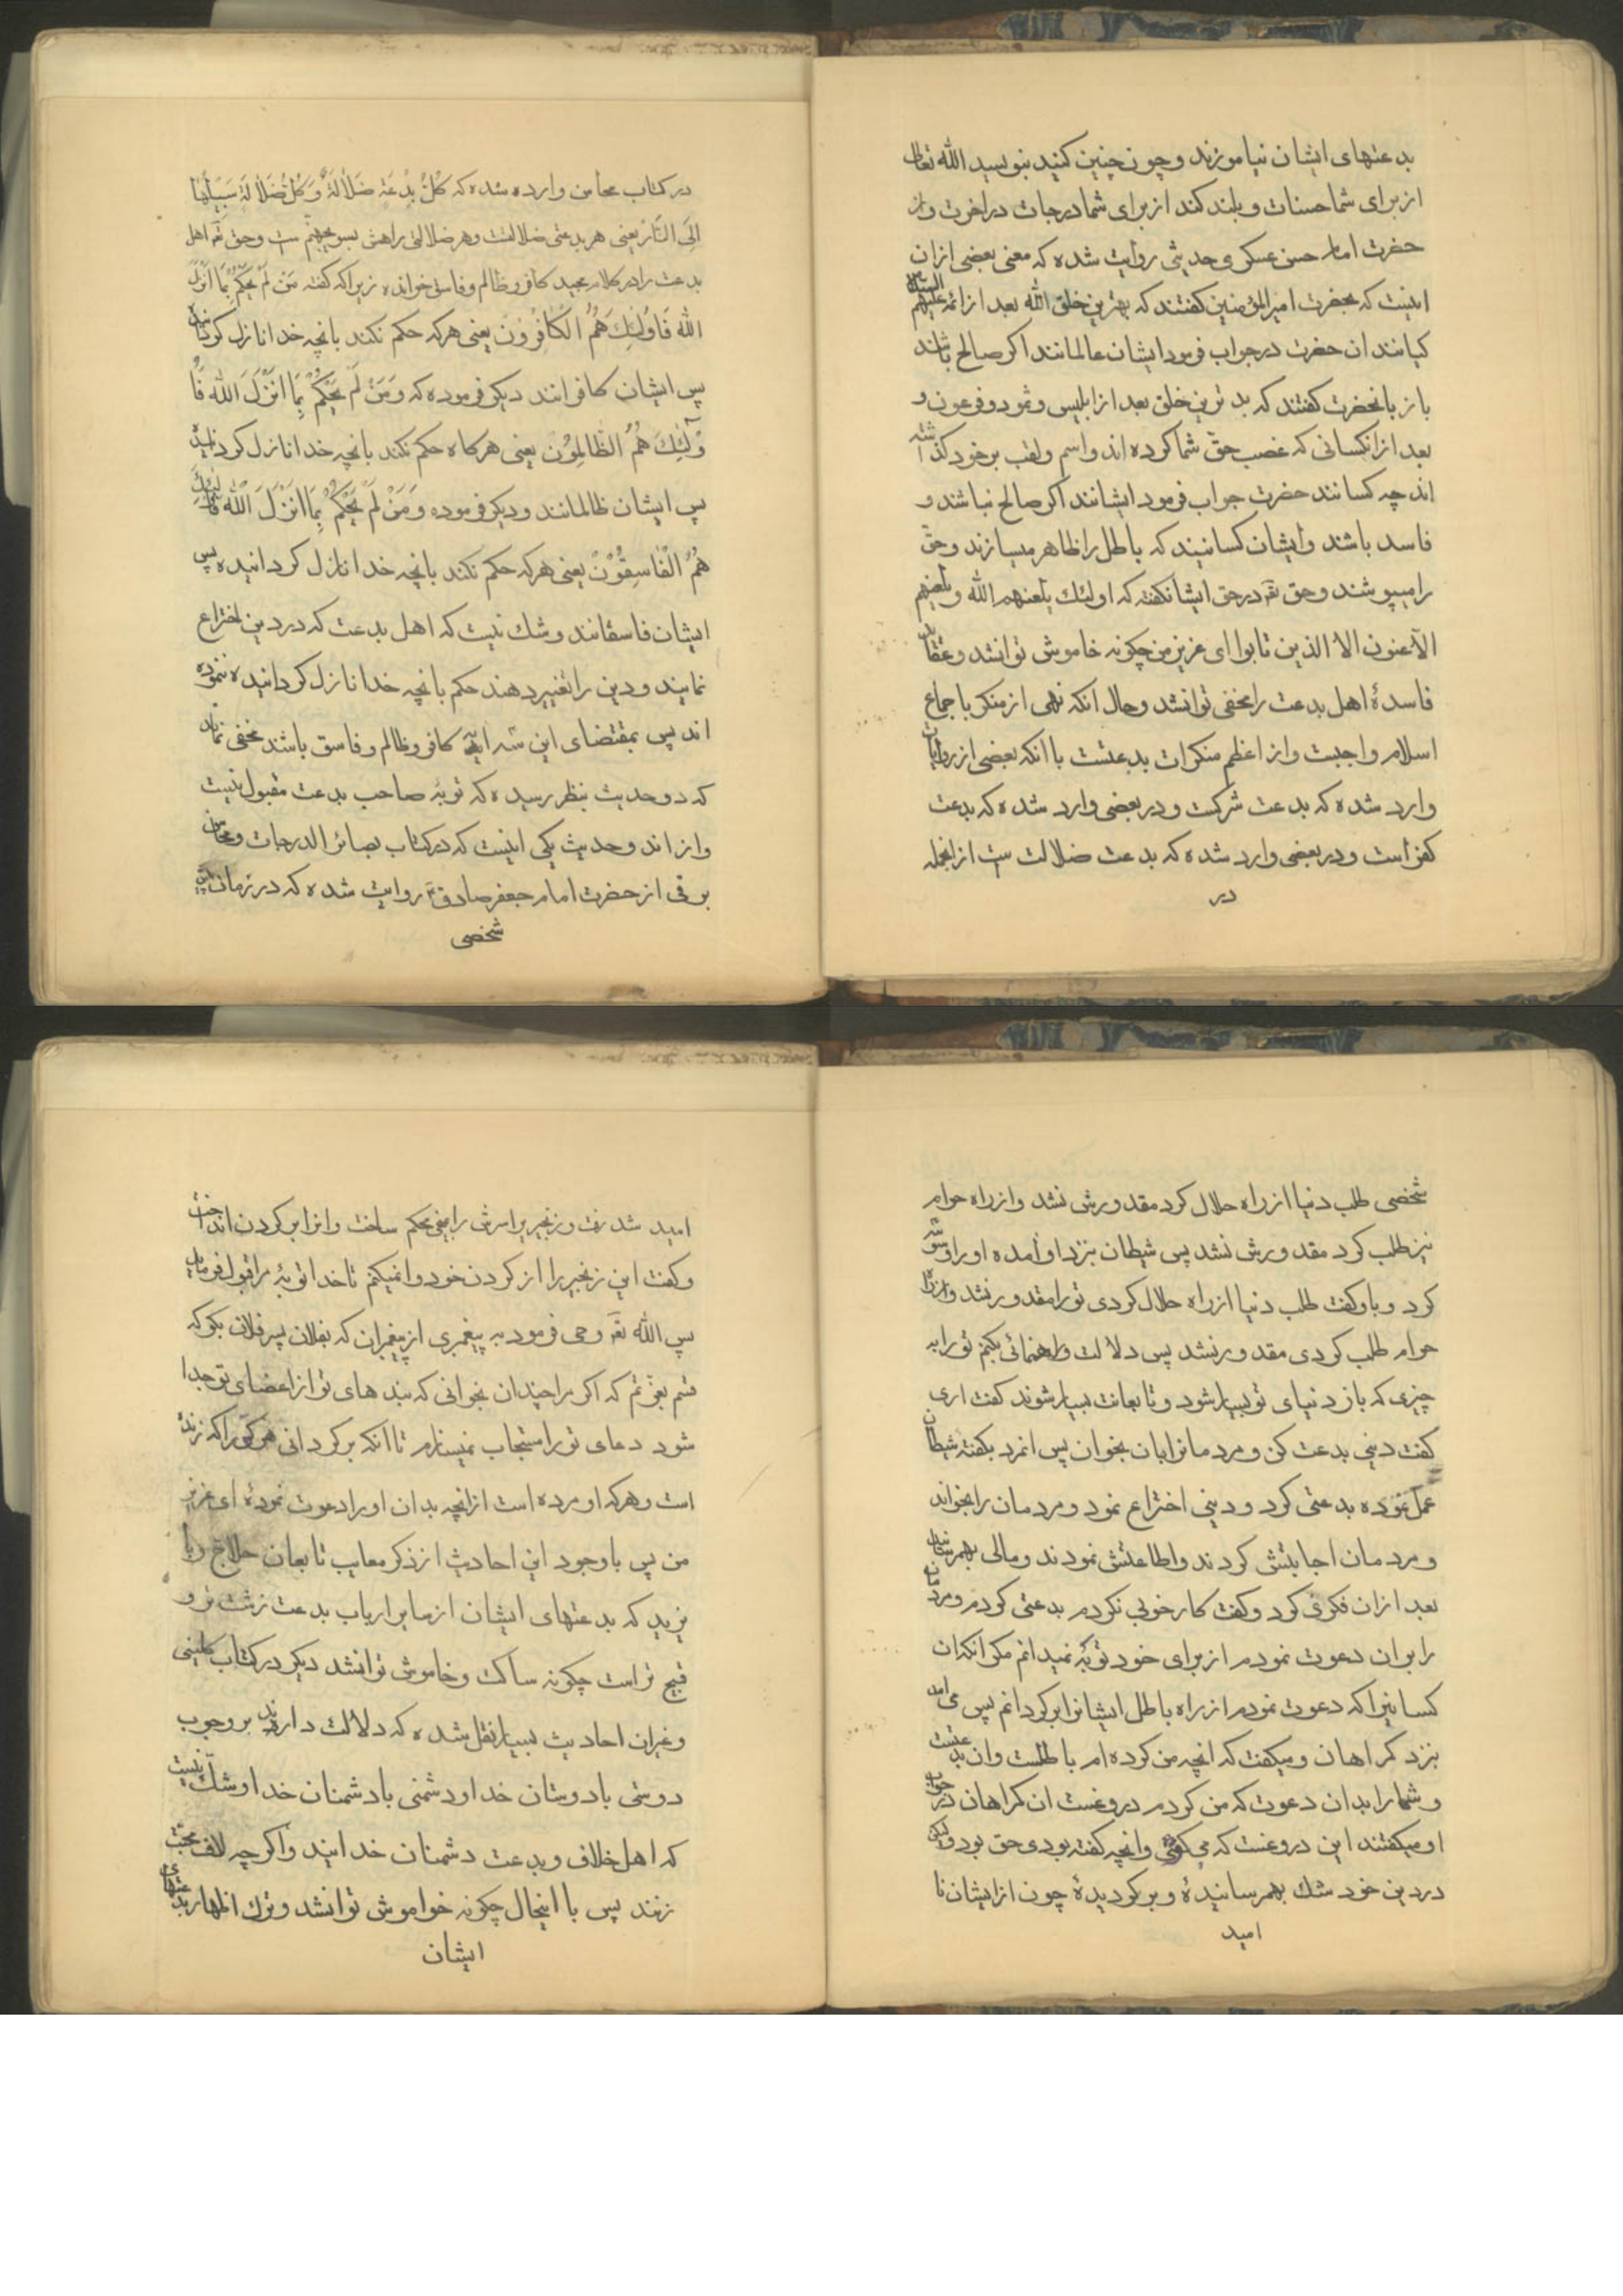 بدعتهای ایشان نیاموزند و چون چنین کنید بنویسد الله تعالی
از برای شما حسنات و بلند کند از برای شما درجات در اخرت و از
حضرت امام حسن عسکری حدیثی روایت شده که معنی بعضی از ان
اینست که بحضرت امیرالمؤمنین کفتند که بهترین خلق الله بعد از ائمه علیهم السلام
کیانند ان حضرت در جواب فرمود ایشان عالمانند اکر صالح باشند
باز بانحضرت کفتند که بدترین خلق بعد از ابلیس و ثمود و فرعون و
بعد از انکسانی که غصب حق شما کرده اند و اسم و لقب بر خود کذاشته
اند چه کسانند حضرت جواب فرمود ایشانند اکر صالح نباشند و
فاسد باشند و ایشان کسانیند که باطل را ظاهر میسازند و حق
را میپوشند و حق تع در حق ایشان کفته که اولئك یلعنهم الله و یلعنهم
الاعنون الا الذین تابوا ای عزیز من چکونه خاموش توانشد و عقاید
فاسدۀ اهل بدعت را مخفی توانشد و حال انکه نهی از منکر باجماع
اسلام واجبست و از اعظم منکرات بدعتست با انکه بعضی از روایات
وارد شده که بدعت شرکت و در بعضی وارد شده که بدعت
کفر است و در بعضی وارد شده که بدعت ضلالت ست از انجمله
در
در کتاب محاسن وارد شده که کُلُّ بِدْعَةٍ ضَلَالَةٌ وَ کُلُّ ضَلَالَةٍ سَبِیلُهَا
اِلَی النَّار یعنی هر بدعتی ضلالتست و هر ضلالتی راهش بسوی جهنم ست و حق تع اهل
بدعت را در کلام مجید کافر و ظالم و فاسق خوانده زیرا که کفته مَنْ لَمْ یَحْکُمْ بِمَا اَنْزَلَ
الله فَاُولٰئِكَ هُمُ الکَافِرُوْنَ یعنی هر که حکم نکند بانچه خدا نازل کردانیده
پس ایشان کافرانند دیکر فرموده که وَمَنْ لَمْ یَحْکُمْ بِمَا اَنْزَلَ الله فَاُ
وْلٰئِكَ هُمُ الظَّالِمُوْنَ یعنی هرکاه حکم نکند بانچه خدا نازل کردانیده
پس ایشان ظالمانند و دیکر فرموده وَمَنْ لَمْ یَحْکُمْ بِمَا اَنْزَلَ الله فَاُولٰئِكَ
هُمُ الْفَاسِقُوْنَ یعنی هر که حکم نکند بانچه خدا نازل کردانیده پس
ایشان فاسقانند و شك نیست که اهل بدعت که در دین اختراع
نمایند و دین را تغییر دهند حکم بانچه خدا نازل کردانیده ننموده
اند پس بمقتضای این سه ایه کافر و ظالم و فاسق باشند مخفی نماند
که دو حدیث بنظر رسیده که توبۀ صاحب بدعت مقبول نیست
و از اندو حدیث یکی اینست که در کتاب بصائر الدرجات و محاسن
برقی از حضرت امام جعفر صادق ع روایت شده که در زمان
شخصی
شخصی طلب دنیا از راه حلال کرد مقدورش نشد و از راه حرام
نیز طلب کرد مقدورش نشد پس شیطان بنزد او آمده او را وسوسه
کرد و باو کفت طلب دنیا از راه حلال کردی تو را مقدور نشد و از راه
حرام طلب کردی مقدور نشد پس دلالت و راهنمائی بکنم تو را به
چیزی که باز دنیای تو بسیار شود و تابعانت بسیار شوند کفت اری
کفت دینی بدعت کن و مردمانرا بان بخوان پس انمرد بکفتۀ شیطان
عمل نموده بدعتی کرد و دینی اختراع نمود و مردمان را بخواند
و مردمان اجابتش کردند و اطاعتش نمودند و مالی بهمرسانید
بعد از ان فکری کرد و کفت کار خوبی نکردم بدعتی کردم و مردمان
را بران دعوت نمودم از برای خود توبۀ نمیدانم مکر انکه ان
کسانیرا که دعوت نمودم از راه باطل ایشانرا برکردانم پس می امد
بنزد کمراهان و میکفت که انچه من کرده ام باطلست و ان بدعتست
و شما را بدان دعوت که من کردم دروغست ان کمراهان در جواب
او میکفتند این دروغست که می کوئی و انچه کفته بودی حق بود ولیکن
در دین خود شك بهمرسانیدۀ و برکردیدۀ چون از ایشان نا
امید
امید شد رفت و زنجیر براسرش را بمیخی محکم ساخت و انرا بر کردن انداخت
و کفت این زنجیر را از کردن خود وا نمیکنم تا خدا توبۀ مرا قبول فرماید
پس الله تع وحی فرمود به پیغمبری از پیغمبران که بفلان پسر فلان بکو که
قسم بعزتم که اکر مرا چندان بخوانی که بندهای تو از اعضای تو جدا
شود دعای تو را مستجاب نمیسازم تا انکه برکردانی هر کو را که زنده
است و هر که او مرده است از انچه بدان او را دعوت نمودۀ ای عزیز
من پس با وجود این احادیث از ذکر معایب تابعان حلاج و با
یزید که بدعتهای ایشان از سایر ارباب بدعت زشت تر و
قبیح تر است چکونه ساکت و خاموش توانشد دیکر در کتاب کلینی
و غیر ان احادیث بسیار نقل شده که دلالت دارند بر وجوب
دوستی با دوستان خدا و دشمنی با دشمنان خدا و شك نیست
که اهل خلاف و بدعت دشمنان خدایند و اکر چه لاف محبت
زنند پس با اینحال چکونه خواموش توانشد و ترك اظهار بدعتهای
ایشان